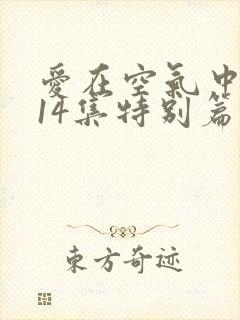 愛在空氣中
14集特别篇
东方奇迹